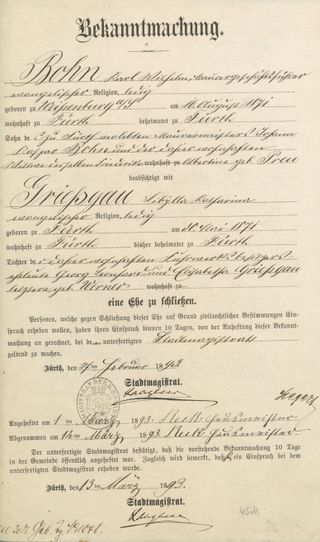 Bekanntmachung.
Bohn Karl Wilhelm, Maurergeschäftsführer
evangelischer Religion, ledig
geboren zu Weißenburg a/S am 16. August 1871
wohnhaft zu Fürth beheimatet zu Fürth
Sohn des zu Fürth verlebten Maurermeisters Johann
Kaspar Bohn und der daher wohnhaften
Wittwe desselben wohnhaft zu Albertine geb. Preu
beabsichtigt mit
Grießgau Sibylla Katharina
evangelischer Religion, ledig
geboren zu Fürth am Mai 1871
wohnhaft zu Fürth bisher beheimatet zu Fürth
Tochter der daher wohnhaften Fuhrwerksbesitzers
eheleute Georg Leonhard und Elisabetha Grießgau
letztere geb. Werner wohnhaft zu
eine Ehe zu schließen.
Personen, welche gegen Schließung dieser Ehe auf Grund zivilrechtlicher Bestimmungen Ein-
spruch erheben wollen, haben ihren Einspruch binnen 10 Tagen, von der Anheftung dieser Bekannt-
machung an gerechnet, bei dem unterfertigten Stadtmagistrats
geltend zu machen.
Fürth, den Februar 1893
Stadtmagistrat.
Angeheftet am 1ten März 1893. Hausmeister
Abgenommen am März 1893. Hausmeister
Der unterfertigte Stadtmagistrat bestätigt, daß die vorstehende Bekanntmachung 10 Tage
in der Gemeinde öffentlich angeheftet war. Zugleich wird bemerkt, daß ein Einspruch bei dem
unterfertigten Stadtmagistrat erhoben wurde.
Fürth, den 13 März 1893.
Stadtmagistrat.